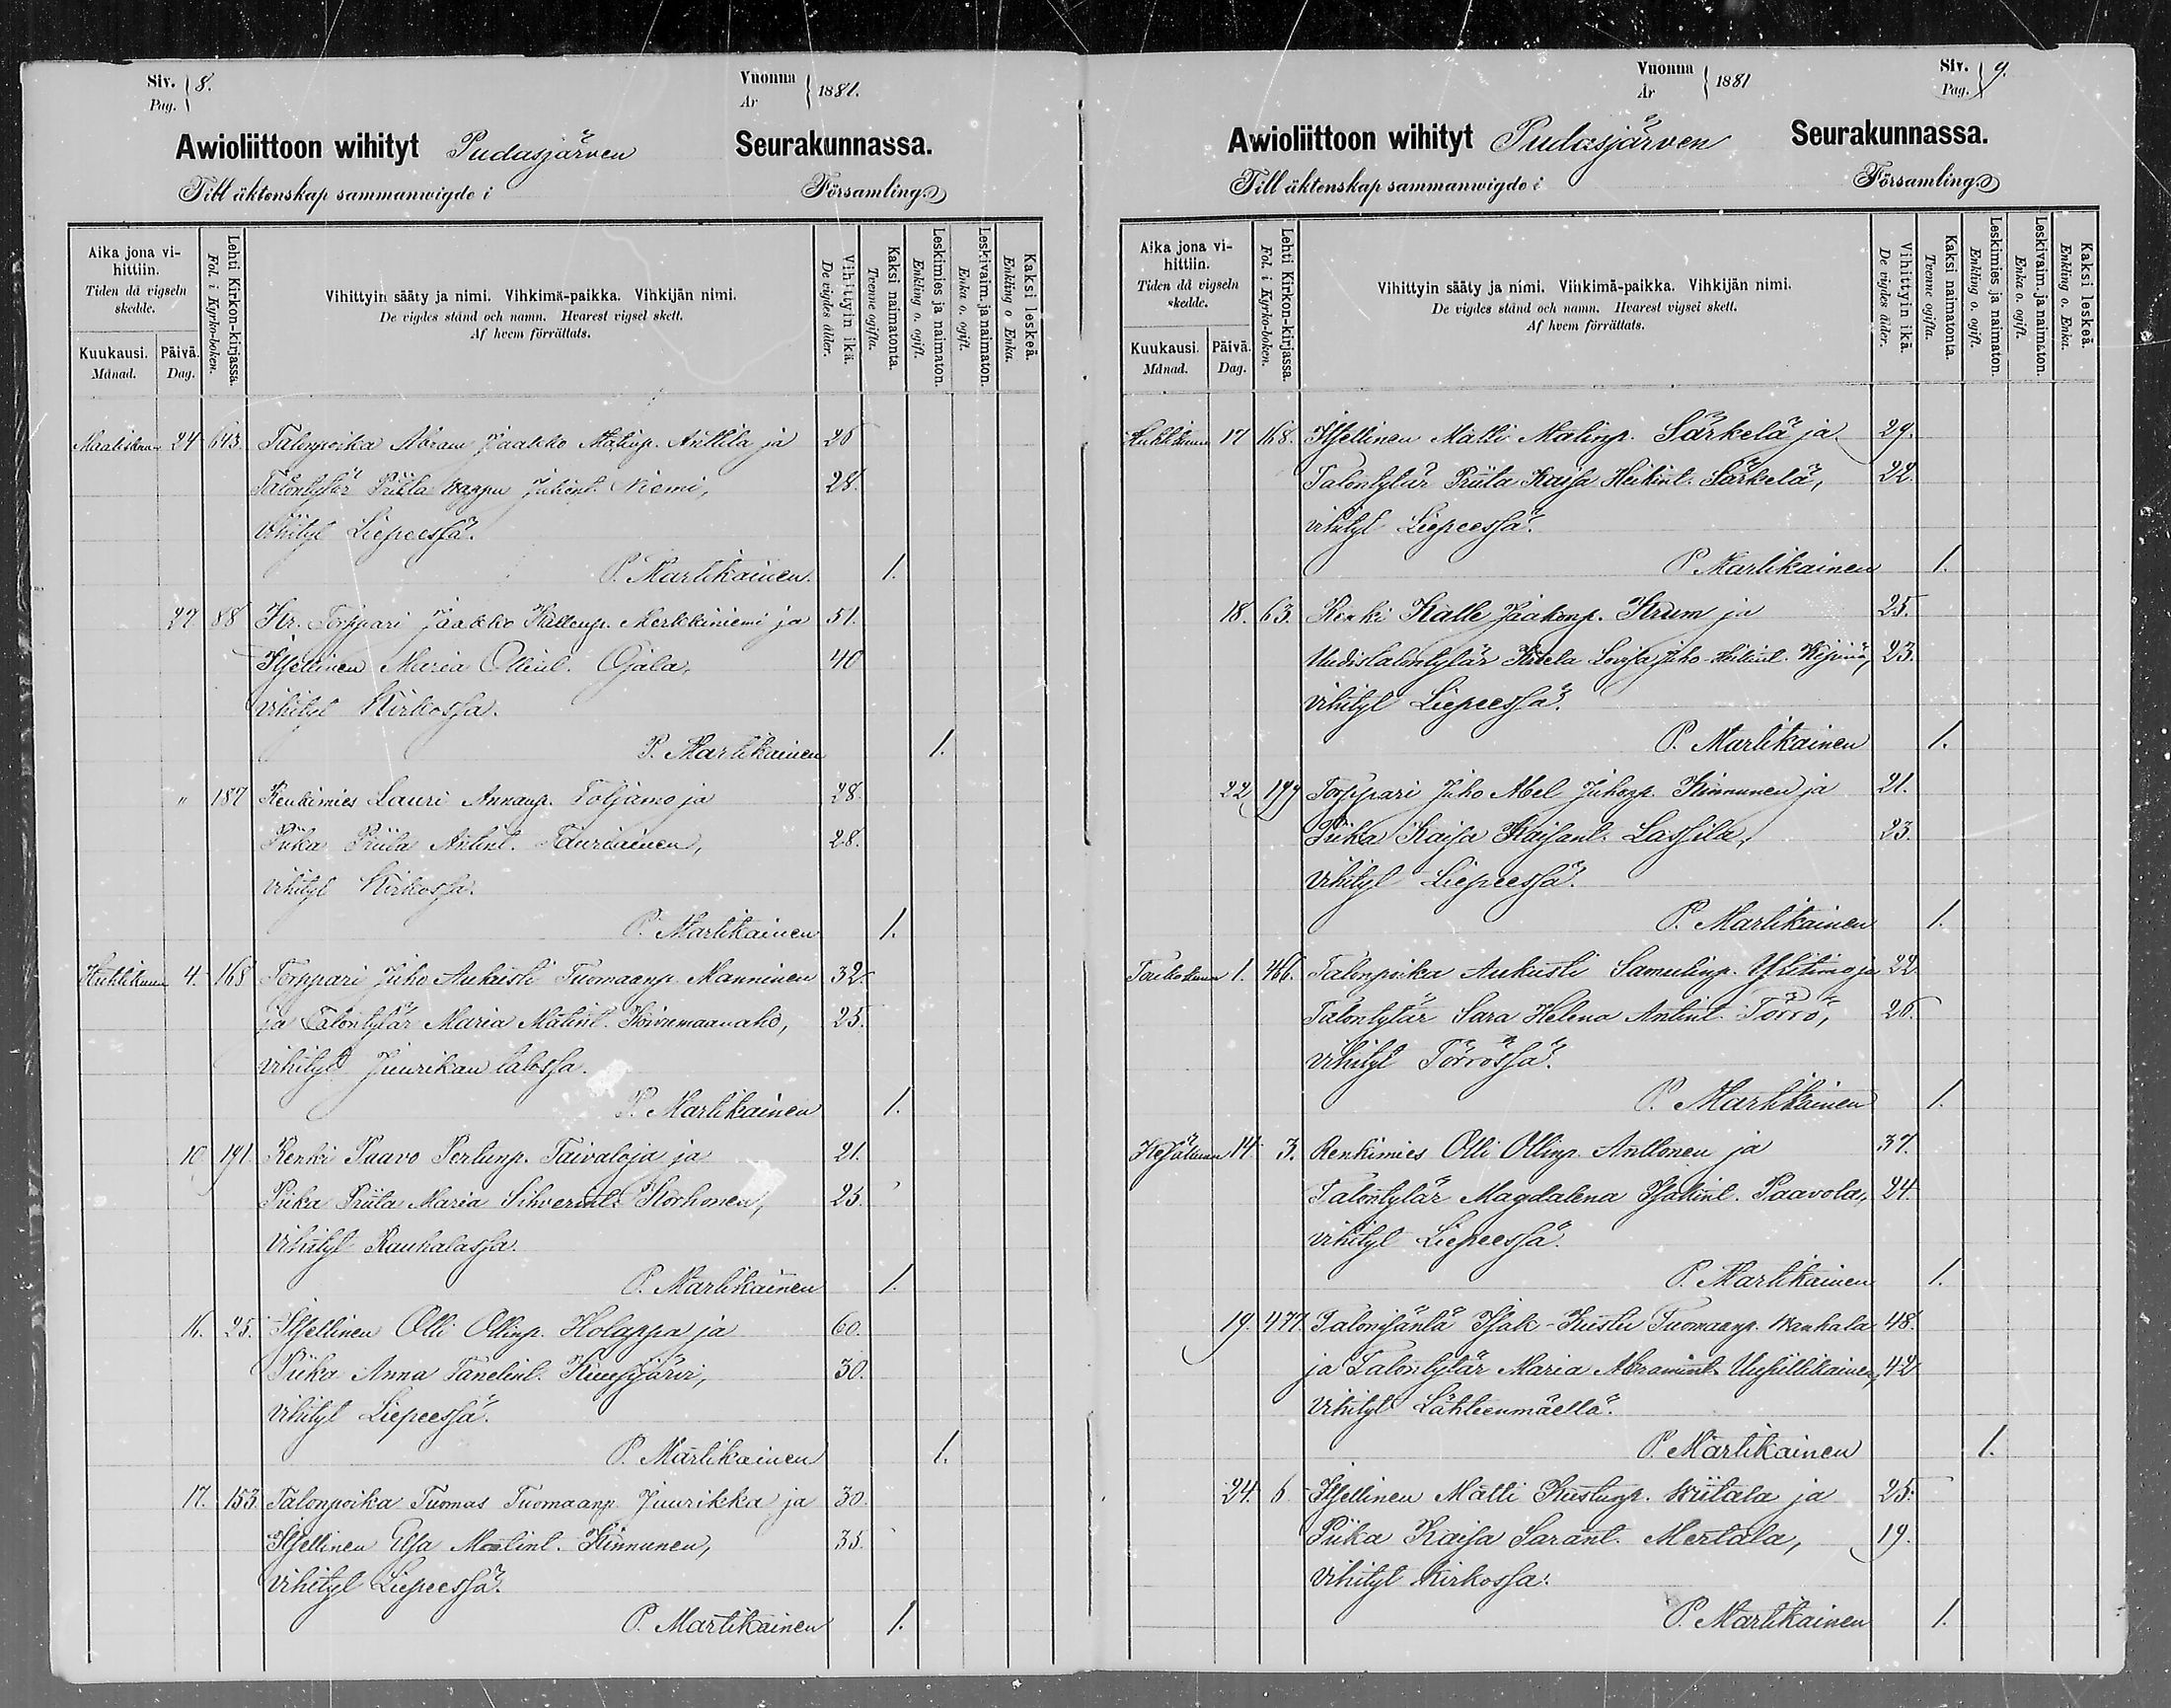 Siv. 8.
Pag.
Vuonna 1881.
År
Awioliittoon wihityt Pudasjärven Seurakunnassa.
Till äktenskap sammanwigde i Församling.
Aika jona vihittiin.
Tiden då vigseln skedde.
Kuukausi. Månad.
Päivä. Dag.
Lehti Kirkon-kirjassa. Fol. i Kyrko-boken.
Vihittyin sääty ja nimi. Vihkimä-paikka. Vihkijän nimi.
De vigdes stånd och namn. Hvarest vigsel skett.
Af hvem förrättats.
Vihittyin ikä. De vigdes ålder.
Kaksi naimatonta. Tvenne ogifta.
Leskimies ja naimaton. Enkling o. ogift.
Leskivaim. ja naimaton. Enka o. ogift.
Kaksi leskeä. Enkling o Enka.
Maaliskuun 24 643. Talonpoika Abram Jaakko Matinp. Anttila ja 26
Talontytär Priita Wappu Juhont. Niemi, 28.
vihityt Liepeessä.
P. Martikainen. 1.
27 88 Itr. Torppari Jaakko Kallenp. Merkkiniemi ja 51.
Itsellinen Maria Ollint. Ojala, 40
vihityt Kirkossa.
P. Martikainen 1.
" 187 Renkimies Lauri Annanp. Toljamo ja 28.
Piika Priita Antint. Tauriainen, 28.
vihityt Kirkossa.
P. Martikainen 1.
Huhtikuun 4. 168 Torppari Juho Aukusti Tuomaanp. Manninen 32.
ja Talontytär Maria Matint. Koivumaanaho, 25.
vihityt Juurikan talossa.
P. Martikainen 1.
10. 191. Renki Paavo Pertunp. Taivaloja ja 21.
Piika Priita Maria Sihverint. Korhonen, 25.
vihityt Rauhalassa.
P. Martikainen 1.
16. 25. Itsellinen Olli Ollinp. Holappa ja 60.
Piika Anna Tanelint. Kuusijärvi, 30.
vihityt Liepeessä.
P. Martikainen 1.
17. 153. Talonpoika Tuomas Tuomaanp. Juurikka ja 30.
Itsellinen Elsa Matint. Kinnunen, 35.
vihityt Liepeessä.
P. Martikainen 1.
Vuonna 1881
År
Siv. 9.
Pag.
Awioliittoon wihityt Pudasjärven Seurakunnassa.
Till äktenskap sammanwigde i Församling.
Aika jona vihittiin.
Tiden då vigseln skedde.
Kuukausi. Månad.
Päivä. Dag.
Lehti Kirkon-kirjassa. Fol. i Kyrko-boken.
Vihittyin sääty ja nimi. Vihkimä-paikka. Vihkijän nimi.
De vigdes stånd och namn. Hvarest vigsel skett.
Af hvem förrättats.
Vihittyin ikä. De vigdes ålder.
Kaksi naimatonta. Tvenne ogifta.
Leskimies ja naimaton. Enkling o. ogift.
Leskivaim. ja naimaton. Enka o. ogift.
Kaksi leskeä. Enkling o. Enka.
Huhtikuun 17 168. Itsellinen Matti Matinp. Särkelä ja 29.
Talontytär Priita Kaisa Heikint. Särkelä, 22.
vihityt Liepeessä.
P. Martikainen 1.
18. 63. Renki Kalle Jaakonp. Krum ja 25.
Uudistalontytär Lovisa Juho Heikint. 23.
vihityt Liepeessä.
P. Martikainen 1.
22 199 Torppari Juho Abel Juhonp. Kinnunen ja 21.
Piika Kaisa Kaisant. Lassila, 23.
vihityt Liepeessä.
P. Martikainen 1.
Toukokuun 1. 466. Talonpoika Aukusti Samulinp. Ylitimo ja 22
Talontytär Sara Helena Antint. Törrö, 26.
vihityt Törrössä.
P. Martikainen 1.
Kesäkuun 14 3. Renkimies Olli Ollinp. Anttonen ja 37.
Talontytär Magdalena Isakint. Paavola, 24.
vihityt Liepeessä.
P. Martikainen 1.
19. 477. Talonisäntä Isak-Kustu Tuomaanp. Wankala 48.
ja Talontytär Maria Abramint. Uusiillikainen, 42
vihityt Lähteenmäellä.
P. Martikainen 1.
24. 6 Itsellinen Matti Kustunp. Wiitala ja 25.
Piika Kaisa Sarant. Mertala, 19.
vihityt Kirkossa.
P. Martikainen 1.